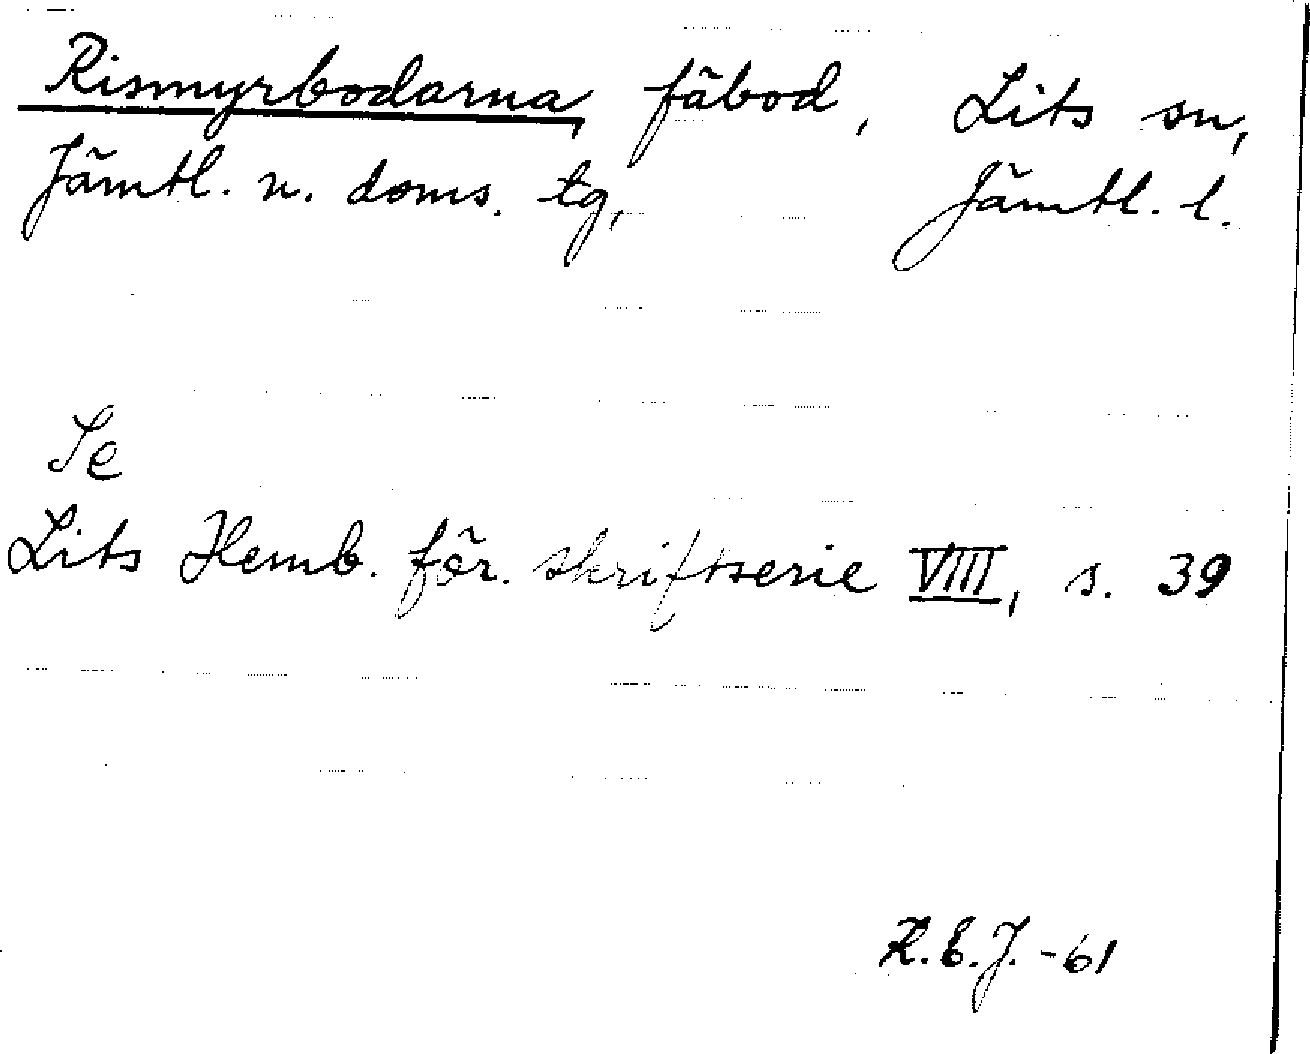 Rismyrbodarna, fäbod, Lits sn,
Jämtl. n. doms. tg, Jämtl. l.
Se
Lits Hemb. för. skriftserie VIII, s. 39
K.E.J. -61